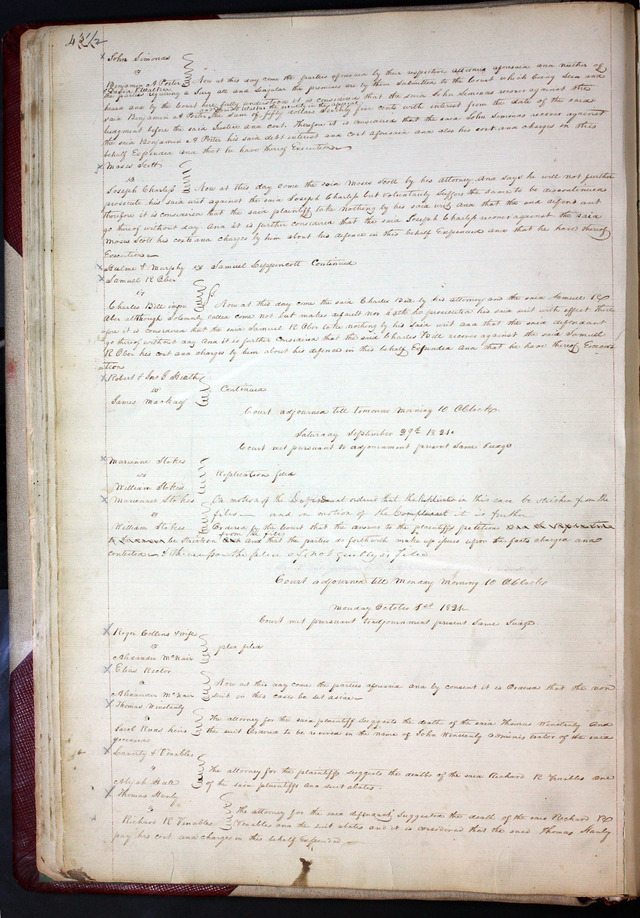 45 1/2
John Simonds
vs
Benjamin A Porter Now at this day come the parties aforesaid by their respective attornies aforesaid and neither of
the parties requiring a Jury all and singular the premises are by them submitted to the Court which being seen and
heard and by the Court here fully understood it is considered that the said John Simonds recover against the
said Benjamin A Porter the sum of fifty dollars Seventy five cents with interest from the date of the said
Judgment before the said Justice and cost. Therefore it is considered that the said John Simonds recover against
the said Benjamin A Porter his said debt interest and cost aforesaid and also his cost and charges in this
behalf Expended and that he have thereof Execution
Moses Scott
vs
Joseph Charless Now at this day Come the said Moses Scott by his attorney and says he will not further
prosecute his said suit against the said Joseph Charless but voluntarily suffers the same to be discontinued
therefore it is considered that the said plaintiff take nothing by his said writ and that the said defend ant
go hereof without day And it is further considered that the said Joseph Charless recover against the said
Moses Scott his costs and charges by him about his defence in this behalf Expended and that he have thereof
Execution
Hulme & Murphy vs Samuel Lippincott Continued
Samuel R Ober
vs
Charles Bill Now at this day come the said Charles Bill by his attorney and the said Samuel R
Ober although Solemnly called come not but makes default nor doth he prosecute his said suit with effect there
fore it is considered that the said Samuel R Ober take nothing by his said writ and that the said defendant
go hereof without day And it is further Considered that the said Charles Bill recover against the said Samuel
R Ober his cost and charges by him about his defence in this behalf Expended And that he have thereof Execu
ution
Robert & Jno G Heath
vs Continued
James Mackay
Court adjourned till tomorrow morning 10 OClock
Saturday September 29th 1821
Court met pursuant to adjournment present Same Judge
Marianne Stokes
vs Replication filed
William Stokes
Marianne Stokes On motion of the Defendant ordered that the Replication in this case be stricken from the
vs files and on motion of the Complainant it is further
William Stokes Ordered by the Court that the answer to the plaintiffs petition
be Stricken from the files and that the parties do forthwith make up issues upon the facts charged and
contested
Court adjourned till Monday Morning 10 OClock
Monday October 1st 1821
Court met pursuant to adjournment present Same Judge
Roger Collins & wife
vs plea filed
Alexander McNair
Elias Rector
vs Now at this day come the parties aforesaid and by consent it is Ordered that the non
Alexander McNair suit in this case be set aside
Thomas Winstanly
vs The attorney for the said plaintiff suggests the death of the said Thomas Winstanly and
Jacob heirs the suit Ordered to be revived in the name of John Winstanly administrator of the said
deceased
& Venables
vs The attorney for the plaintiffs suggests the death of the said Richard R Venables one
Elijah of the said plaintiffs and suit abates
Thomas Hanly
vs The attorney for the said defendant Suggested the death of the said Richard R
Richard R Venables Venables and the suit abates and it is considered that the said Thomas Hanly
pay his cost and charges in this behalf Expended